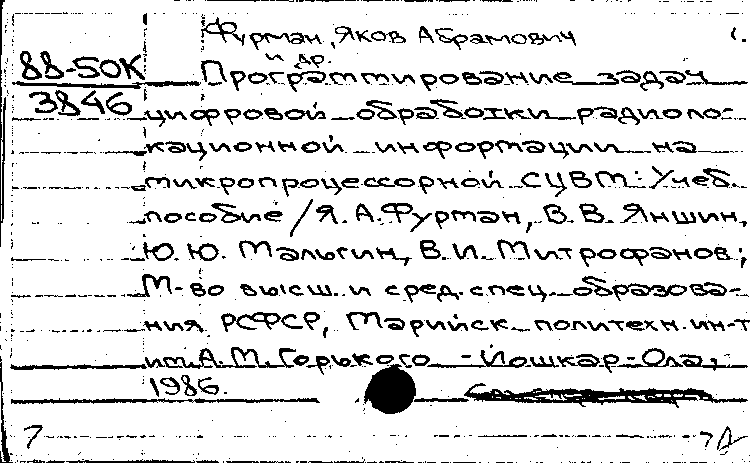 Фурман, Яков Абрамович
и др.
88-50К
3846
Программирование задач
цифровой обработки радиоло-
кационной информации на
микропроцессорной СЦВМ: Учеб.
пособие / Я. А. Фурман, В. В. Яншин,
Ю. Ю. Малыгин, В. И. Митрофанов;
М-во высш. и сред. спец. образова-
ния РСФСР, Марийск. политехн. ин-т
им. А. М. Горького - Йошкар-Ола,
1986.
7